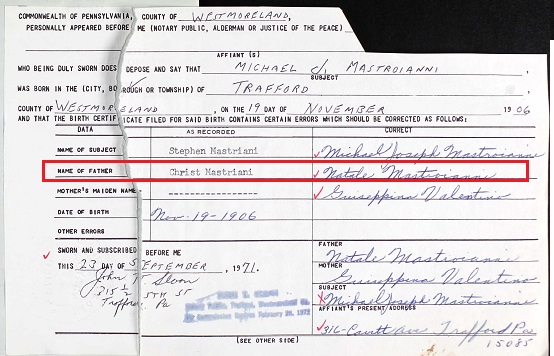 COMMONWEALTH OF PENNSYLVANIA, COUNTY OF WESTMORELAND,
PERSONALLY APPEARED BEFORE ME (NOTARY PUBLIC, ALDERMAN OR JUSTICE OF THE PEACE)
AFFIANT (S)
WHO BEING DULY SWORN DOES DEPOSE AND SAY THAT MICHAEL J. MASTROIANNI,
SUBJECT
WAS BORN IN THE (CITY, BOROUGH OR TOWNSHIP) OF TRAFFORD
COUNTY OF WESTMORELAND, ON THE 19 DAY OF NOVEMBER 1906
AND THAT THE BIRTH CERTIFICATE FILED FOR SAID BIRTH CONTAINS CERTAIN ERRORS WHICH SHOULD BE CORRECTED AS FOLLOWS:
DATA AS RECORDED CORRECT
NAME OF SUBJECT Stephen Mastriani Michael Joseph Mastroianni
NAME OF FATHER Christ Mastriani Natale Mastroianni
MOTHER'S MAIDEN NAME ---------------- Guiseppina Valentino
DATE OF BIRTH Nov-19-1906
OTHER ERRORS
SWORN AND SUBSCRIBED BEFORE ME
THIS 23 DAY OF SEPTEMBER, 1971.
John T Sloan
315 1/2 5TH ST
Trafford, Pa
FATHER
Natale Mastroianni
MOTHER
Guiseppina Valentino
SUBJECT
X Michael Joseph Mastroianni
AFFIANT'S PRESENT ADDRESS
316-Cavitt Ave Trafford Pa
15085
(SEE OTHER SIDE)